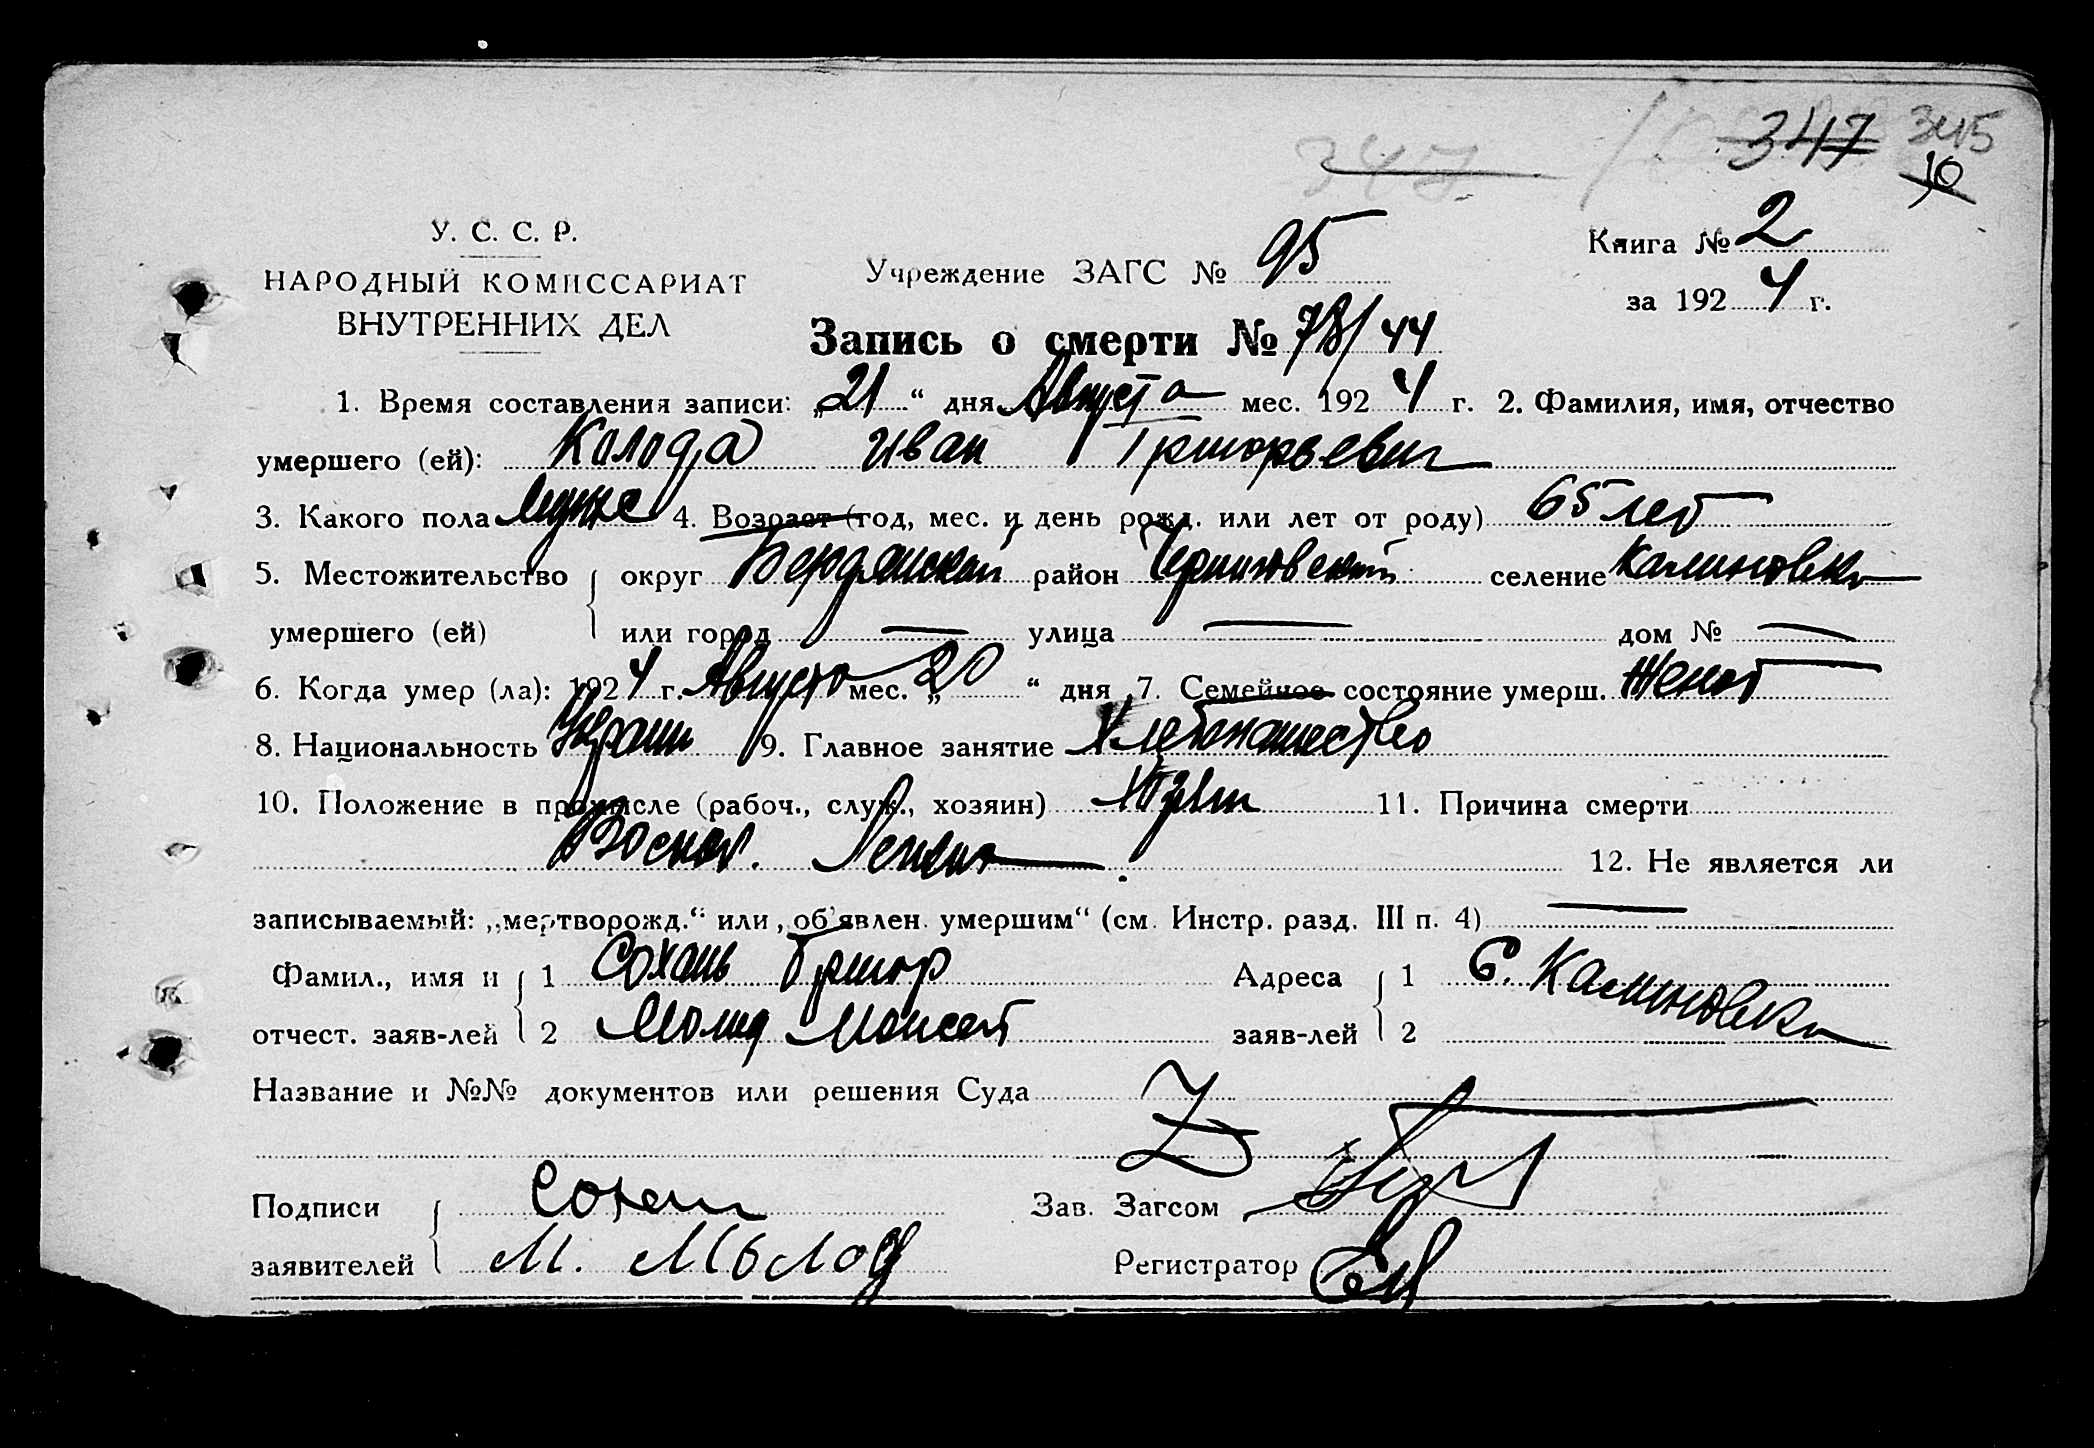 347 347 345
10
У. С. С. Р.
НАРОДНЫЙ КОМИССАРИАТ
ВНУТРЕННИХ ДЕЛ
Учреждение ЗАГС № 95
Книга № 2
за 1924 г.
Запись о смерти № 78/44
1. Время составления записи: „21“ дня Августа мес. 1924 г. 2. Фамилия, имя, отчество
умершего (ей): Колода Иван Григорьевич
3. Какого пола Мужс 4. Возраст (год, мес. и день рожд. или лет от роду) 65 лет
5. Местожительство округ Бердянский район Черниговский селение Калиновка
умершего (ей) или город — улица — дом № —
6. Когда умер (ла): 1924 г. Августа мес. „20“ дня 7. Семейное состояние умерш. Женат
8. Национальность Украин 9. Главное занятие Хлебопашество
10. Положение в промысле (рабоч., служ., хозяин) 11. Причина смерти
Воспал. Легких
12. Не является ли
записываемый: „мертворожд.“ или „об'явлен. умершим“ (см. Инстр. разд. III п. 4) —
Фамил., имя и 1 Сохань Григор Адреса 1 С. Калиновка
отчест. заяв-лей 2 Моисей заяв-лей 2
Название и №№ документов или решения Суда
Подписи Сохань Зав. Загсом
заявителей М. Мблод Регистратор